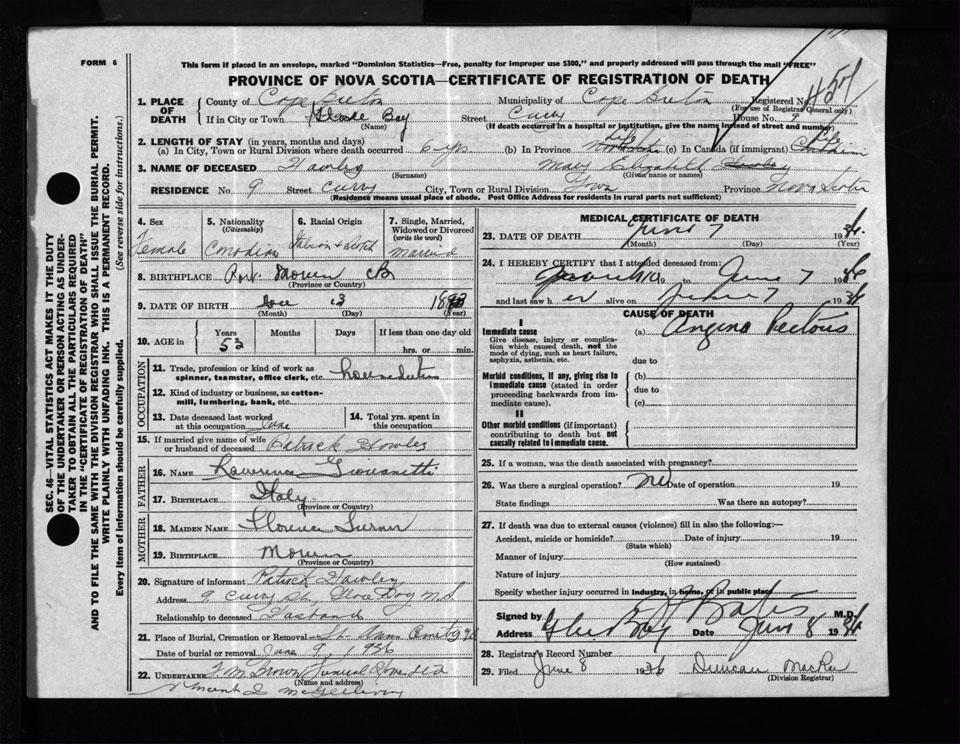 FORM 6
This form if placed in an envelope, marked "Dominion Statistics—Free, penalty for improper use $300," and properly addressed will pass through the mail "FREE"
PROVINCE OF NOVA SCOTIA—CERTIFICATE OF REGISTRATION OF DEATH
SEC. 46—VITAL STATISTICS ACT MAKES IT THE DUTY
OF THE UNDERTAKER OR PERSON ACTING AS UNDER-
TAKER TO OBTAIN ALL THE PARTICULARS REQUIRED
IN THE "CERTIFICATE OF REGISTRATION OF DEATH"
AND TO FILE THE SAME WITH THE DIVISION REGISTRAR WHO SHALL ISSUE THE BURIAL PERMIT.
WRITE PLAINLY WITH UNFADING INK. THIS IS A PERMANENT RECORD.
Every item of information should be carefully supplied. (See reverse side for instructions.)
1. PLACE OF DEATH County of Cape Breton Municipality of Cape Breton Registered No. 457
(For use of Registrar General only)
If in City or Town Glace Bay Street Curry House No. 9
(Name) (If death occurred in a hospital or institution, give the name instead of street and number)
2. LENGTH OF STAY (in years, months and days)
(a) In City, Town or Rural Division where death occurred 6 yrs (b) In Province life (c) In Canada (if immigrant)
3. NAME OF DECEASED Hawley Mary Elizabeth
(Surname) (Given name or names)
RESIDENCE No. 9 Street Curry City, Town or Rural Division Town Province Nova Scotia
(Residence means usual place of abode. Post Office Address for residents in rural parts not sufficient)
4. Sex Female
5. Nationality (Citizenship) Canadian
6. Racial Origin Italian & Scotch
7. Single, Married, Widowed or Divorced (write the word) Married
8. BIRTHPLACE Port Morien CB
(Province or Country)
9. DATE OF BIRTH Dec 13 18
(Month) (Day) (Year)
10. AGE in Years 53 Months Days If less than one day old
hrs. or min.
OCCUPATION
11. Trade, profession or kind of work as spinner, teamster, office clerk, etc. housduties
12. Kind of industry or business, as cotton-mill, lumbering, bank, etc.
13. Date deceased last worked at this occupation June
14. Total yrs. spent in this occupation
15. If married give name of wife or husband of deceased Patrick Hawley
FATHER
16. NAME Lawrence Giovanetti
17. BIRTHPLACE Italy
(Province or Country)
MOTHER
18. MAIDEN NAME Florence Turner
19. BIRTHPLACE Morien
(Province or Country)
20. Signature of informant Patrick Hawley
Address 9 Curry St, Glace Bay N.S
Relationship to deceased Husband
21. Place of Burial, Cremation or Removal St. Anns Cemetry
Date of burial or removal June 9, 1936
22. UNDERTAKER F. M. Brown Funeral Home Ltd
(Name and address)
Vincent J. McGillivray
MEDICAL CERTIFICATE OF DEATH
23. DATE OF DEATH June 7 1936
(Month) (Day) (Year)
24. I HEREBY CERTIFY that I attended deceased from:
19 to June 7 1936
and last saw h er alive on June 7 1936
CAUSE OF DEATH
I
Immediate cause
Give disease, injury or complication which caused death, not the mode of dying, such as heart failure, asphyxia, asthenia, etc.
(a) Angina Pectoris
due to
Morbid conditions, if any, giving rise to immediate cause (stated in order proceeding backwards from immediate cause).
(b)
due to
(c)
II
Other morbid conditions (if important) contributing to death but not causally related to immediate cause.
25. If a woman, was the death associated with pregnancy?
26. Was there a surgical operation? no Date of operation 19
State findings Was there an autopsy?
27. If death was due to external causes (violence) fill in also the following:—
Accident, suicide or homicide? Date of injury 19
(State which)
Manner of injury
(How sustained)
Nature of injury
Specify whether injury occurred in industry, in home, or in public place
Signed by Bates M.D.
Address Glace Bay Date June 8 1936
28. Registrar's Record Number
29. Filed June 8 1936 Duncan MacRae
(Division Registrar)